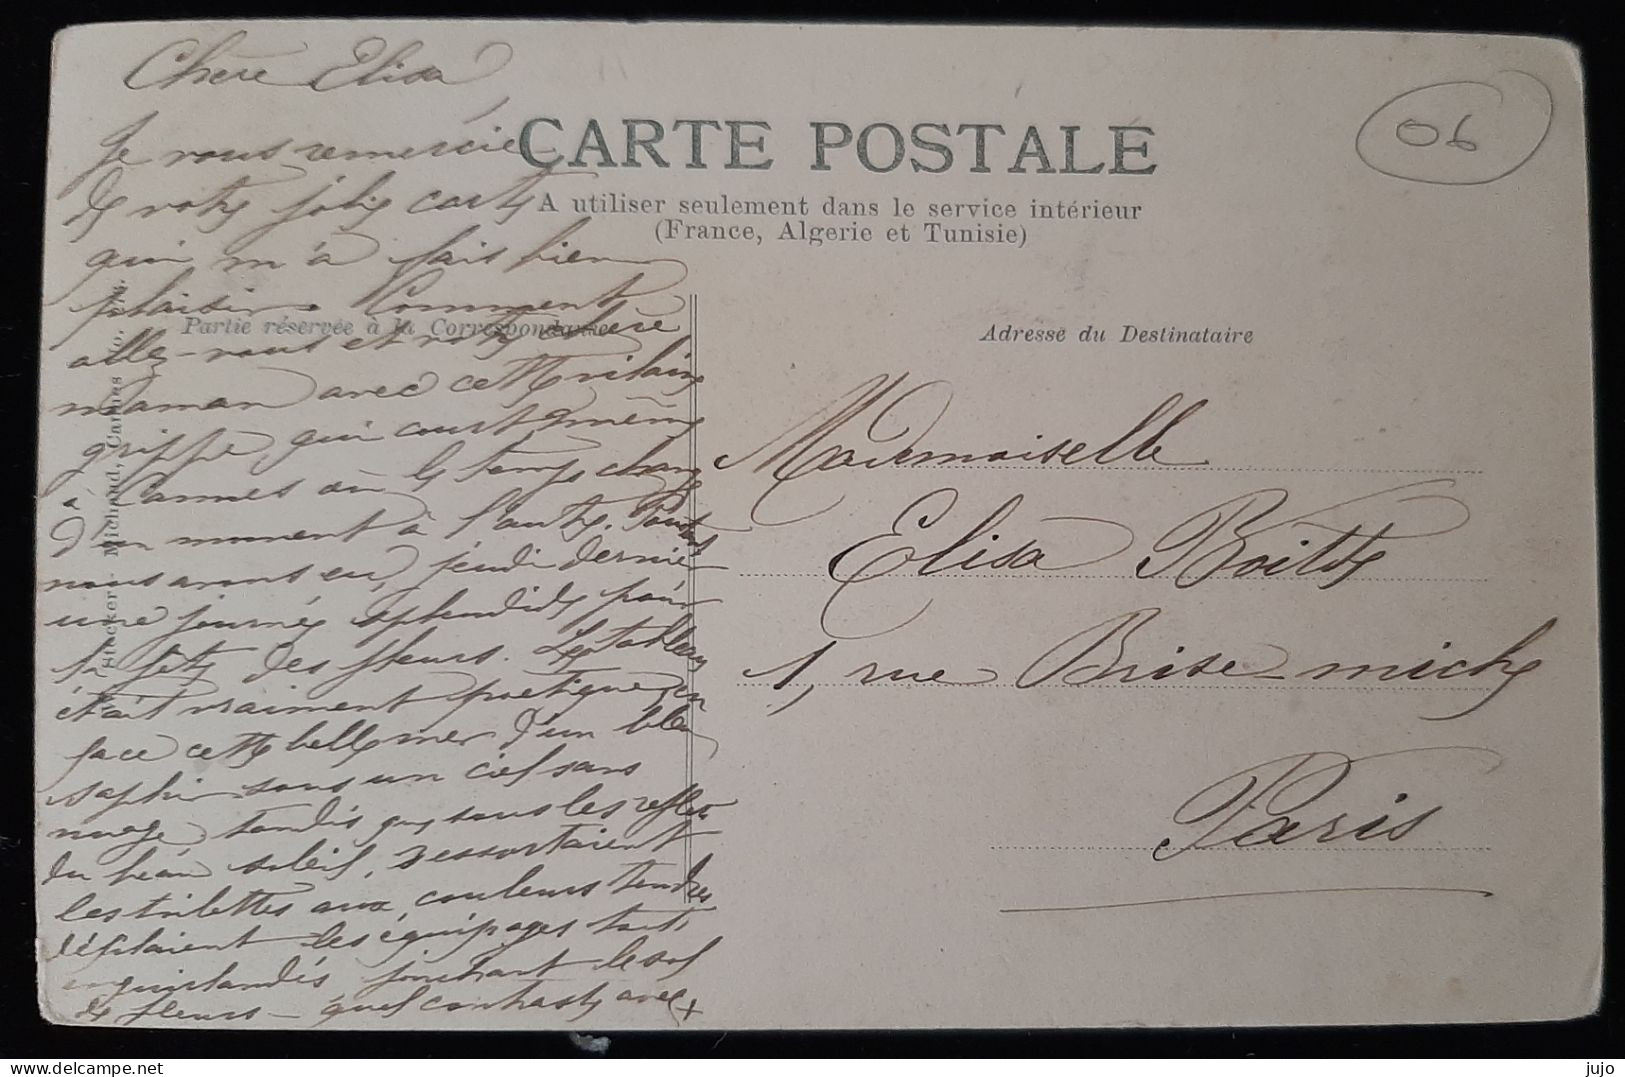 Chère Elisa
Je vous remercie
de votre jolie carte
qui m'a fais bien
plaisir. Comment
allez-vous et votre chère
maman avec cette vilaine
grippe qui court même
à Cannes où le temps change
d'un moment à l'autre. Pourtant
nous avons eu, jeudi dernier
une journée splendide pour
la fête des fleurs. Le tableau
était vraiment poétique, en
face cette belle mer d'un bleu
saphir sous un ciel sans
nuage tandis que sous les reflets
du beau soleil, ressortaient
les toilettes aux couleurs tendres
défilaient les équipages tout
enguirlandés jonchant le sol
de fleurs – quel contraste avec +
CARTE POSTALE
A utiliser seulement dans le service intérieur
(France, Algerie et Tunisie)
Partie réservée à la Correspondance
Adresse du Destinataire
Mademoiselle
Elisa
1, rue Brise-miche
Paris
06
Michaud, Cannes
jujo